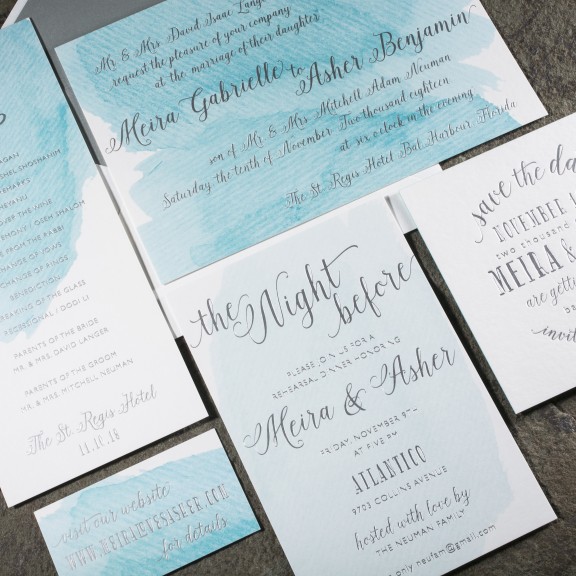 Mr. & Mrs. David Isaac Langer
request the pleasure of your company
at the marriage of their daughter
Meira Gabrielle to Asher Benjamin
son of Mr. & Mrs. Mitchell Adam Neuman
Saturday, the tenth of November, Two thousand eighteen
at six o'clock in the evening
The St. Regis Hotel Bal Harbour, Florida
OVER THE WINE
FROM THE RABBI
EXCHANGE OF VOWS
EXCHANGE OF RINGS
BENEDICTION
BREAKING OF THE GLASS
RECESSIONAL / DODI LI
PARENTS OF THE BRIDE
MR. & MRS. DAVID LANGER
PARENTS OF THE GROOM
MR. & MRS. MITCHELL NEUMAN
The St. Regis Hotel
11.10.18
the Night before
PLEASE JOIN US FOR A
REHEARSAL DINNER HONORING
Meira & Asher
FRIDAY, NOVEMBER 9TH
AT FIVE PM
ATLANTICO
9703 COLLINS AVENUE
hosted with love by
THE NEUMAN FAMILY
only neufam@gmail.com
save the da
NOVEMBER 1
TWO THOUSAND
MEIRA &
are gettin
invit
visit our website
for details